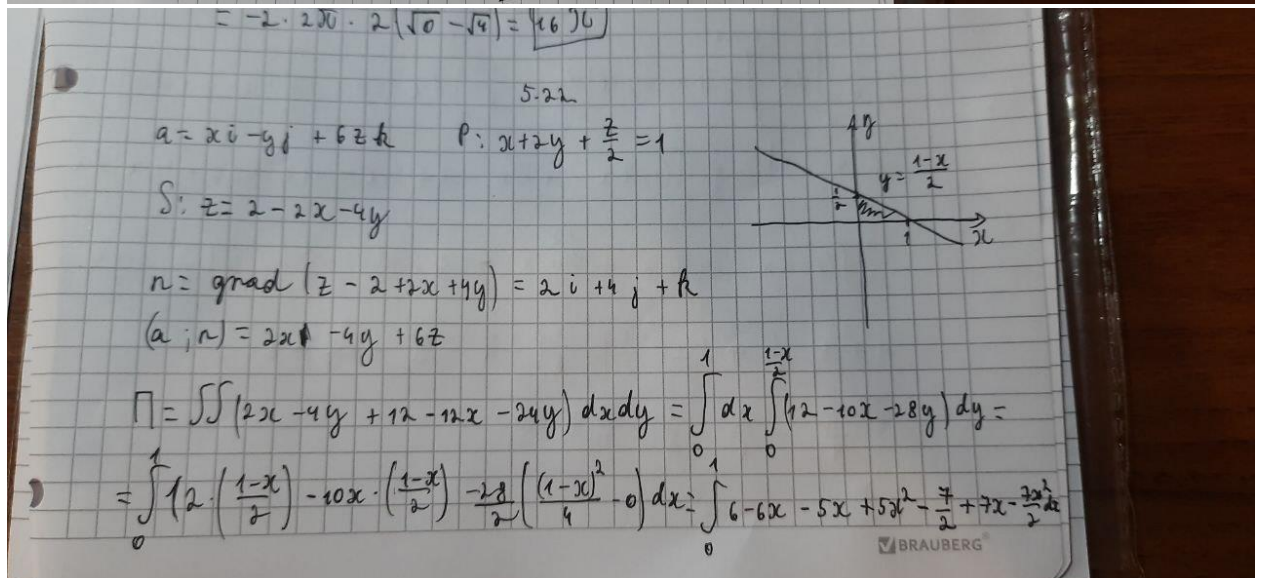 = -2 · 2π · 2(√0 - √4) = 16π
5.22
a = xi - yj + 6zk P: x + 2y + z/2 = 1
y
y = (1-x)/2
S: z = 2 - 2x - 4y
1/2
1 x
n = grad (z - 2 + 2x + 4y) = 2i + 4j + k
(a ; n) = 2x - 4y + 6z
П = ∬(2x - 4y + 12 - 12x - 24y) dxdy = ∫₀¹ dx ∫₀^((1-x)/2) (12 - 10x - 28y) dy =
= ∫₀¹ (12 · ((1-x)/2) - 10x · ((1-x)/2) - 28/2 ((1-x)²/4 - 0) dx = ∫₀¹ 6 - 6x - 5x + 5x² - 7/2 + 7x - 7x²/2 dx
BRAUBERG